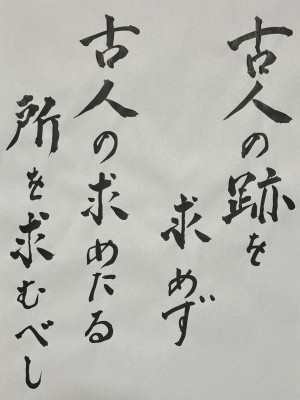 古人の跡を
求めず
古人の求めたる
所を求むべし